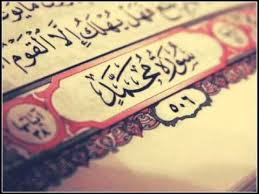 فَهَلْ يُهْلَكُ إِلَّا ٱلْقَوْمُ
سُورَةُ مُحَمَّدٍ
٥٠٦